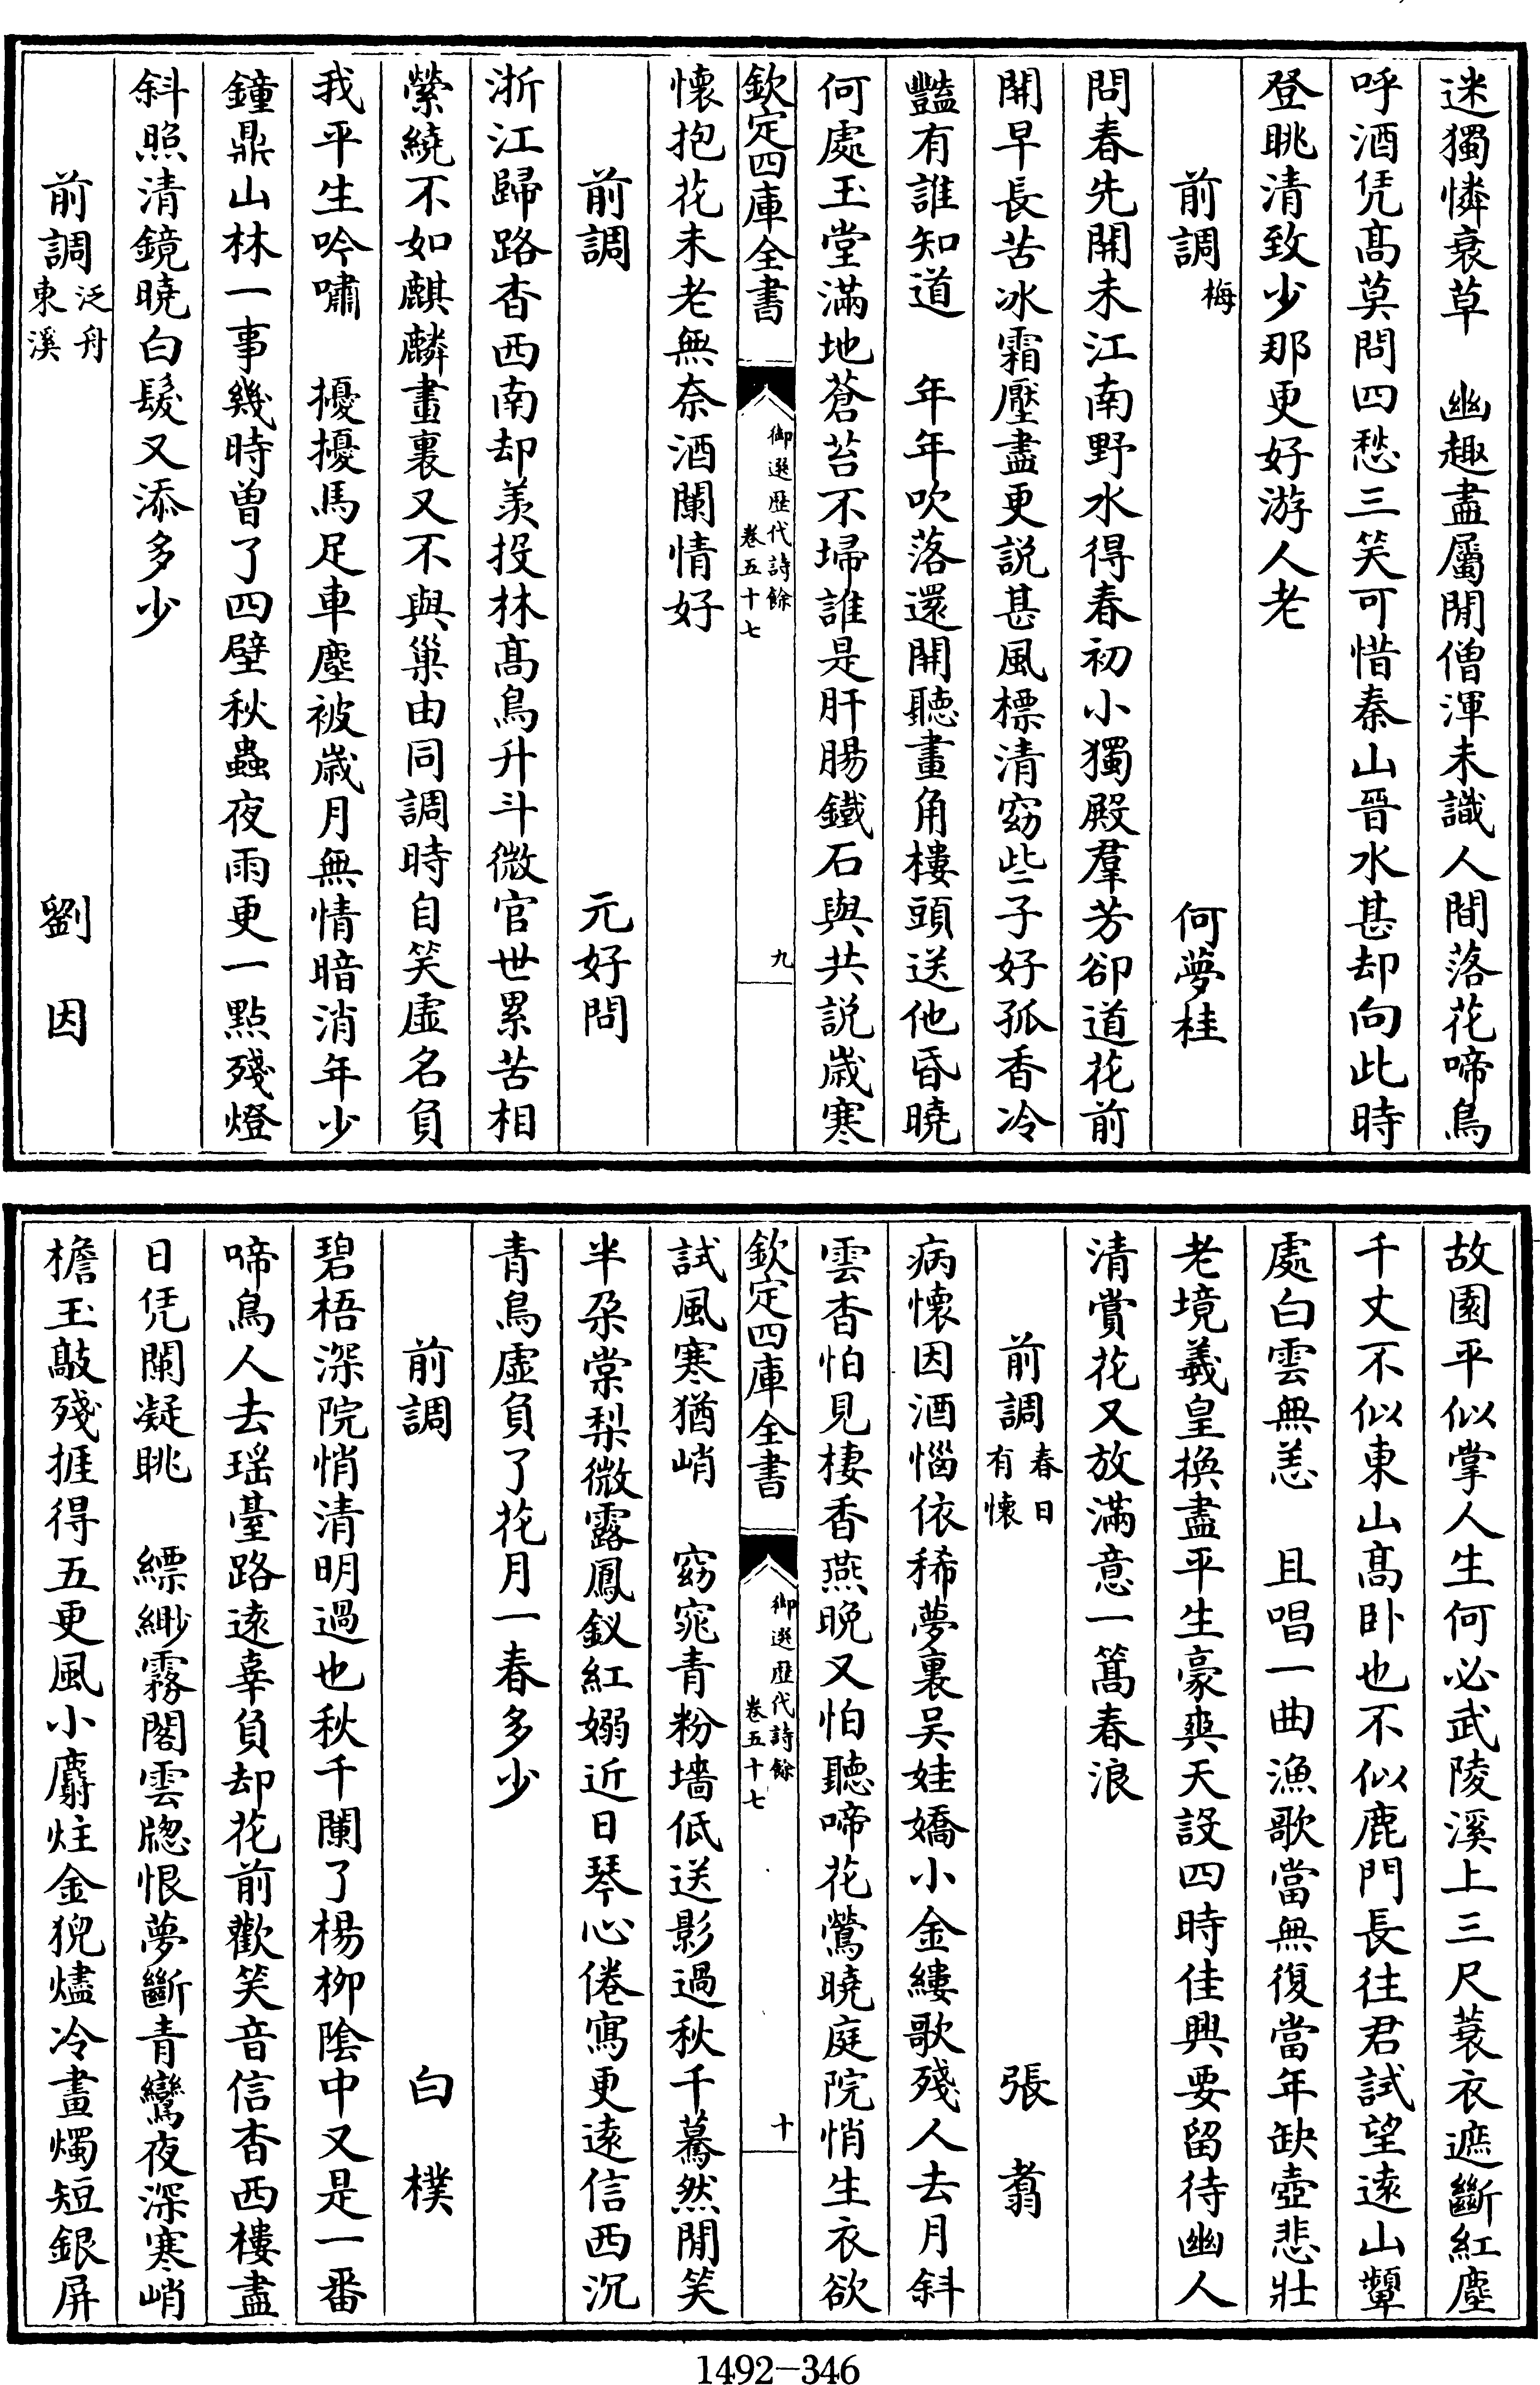 迷獨憐衰草　幽趣盡屬閒僧渾未識人間落花啼鳥
呼酒凭髙莫問四愁三笑可惜秦山晉水甚却向此時
登眺清致少那更好游人老
前調梅　何夢桂
問春先開未江南野水得春初小獨殿羣芳卻道花前
開早長苦冰霜壓盡更説甚風標清窈些子好孤香冷
豔有誰知道　年年吹落還開聽畫角樓頭送他昏曉
何處玉堂滿地蒼苔不埽誰是肝腸鐵石與共説歳寒
欽定四庫全書　御選歴代詩餘卷五十七　九
懐抱花未老無奈酒闌情好
前調　元好問
浙江歸路杳西南却羨投林髙鳥升斗微官世累苦相
縈繞不如麒麟畫裏又不與巢由同調時自笑虚名負
我平生吟嘯　擾擾馬足車塵被歳月無情暗消年少
鐘鼎山林一事幾時曽了四壁秋蟲夜雨更一點殘燈
斜照清鏡曉白髮又添多少
前調泛舟東溪　劉因
故園平似掌人生何必武陵溪上三尺蓑衣遮斷紅塵
千丈不似東山髙卧也不似鹿門長往君試望逺山顰
處白雲無恙　且唱一曲漁歌當無復當年缺壺悲壯
老境羲皇換盡平生豪爽天設四時佳興要留待幽人
清賞花又放滿意一篙春浪
前調春日有懐　張翥
病懐因酒惱依稀夢裏吴娃嬌小金縷歌殘人去月斜
雲杳怕見棲香燕晩又怕聽啼花鶯曉庭院悄生衣欲
欽定四庫全書　御選歴代詩餘卷五十七　十
試風寒猶峭　窈窕青粉墻低送影過秋千驀然閒笑
半朶棠梨微露鳳釵紅嫋近日琴心倦寫更逺信西沉
青鳥虚負了花月一春多少
前調　白樸
碧梧深院悄清明過也秋千闌了楊柳隂中又是一番
啼鳥人去瑶臺路逺辜負却花前歡笑音信杳西樓盡
日凭闌凝眺　縹緲霧閣雲牕恨夢斷青鸞夜深寒峭
檐玉敲殘捱得五更風小麝炷金猊燼冷畫燭短銀屏
1492-346